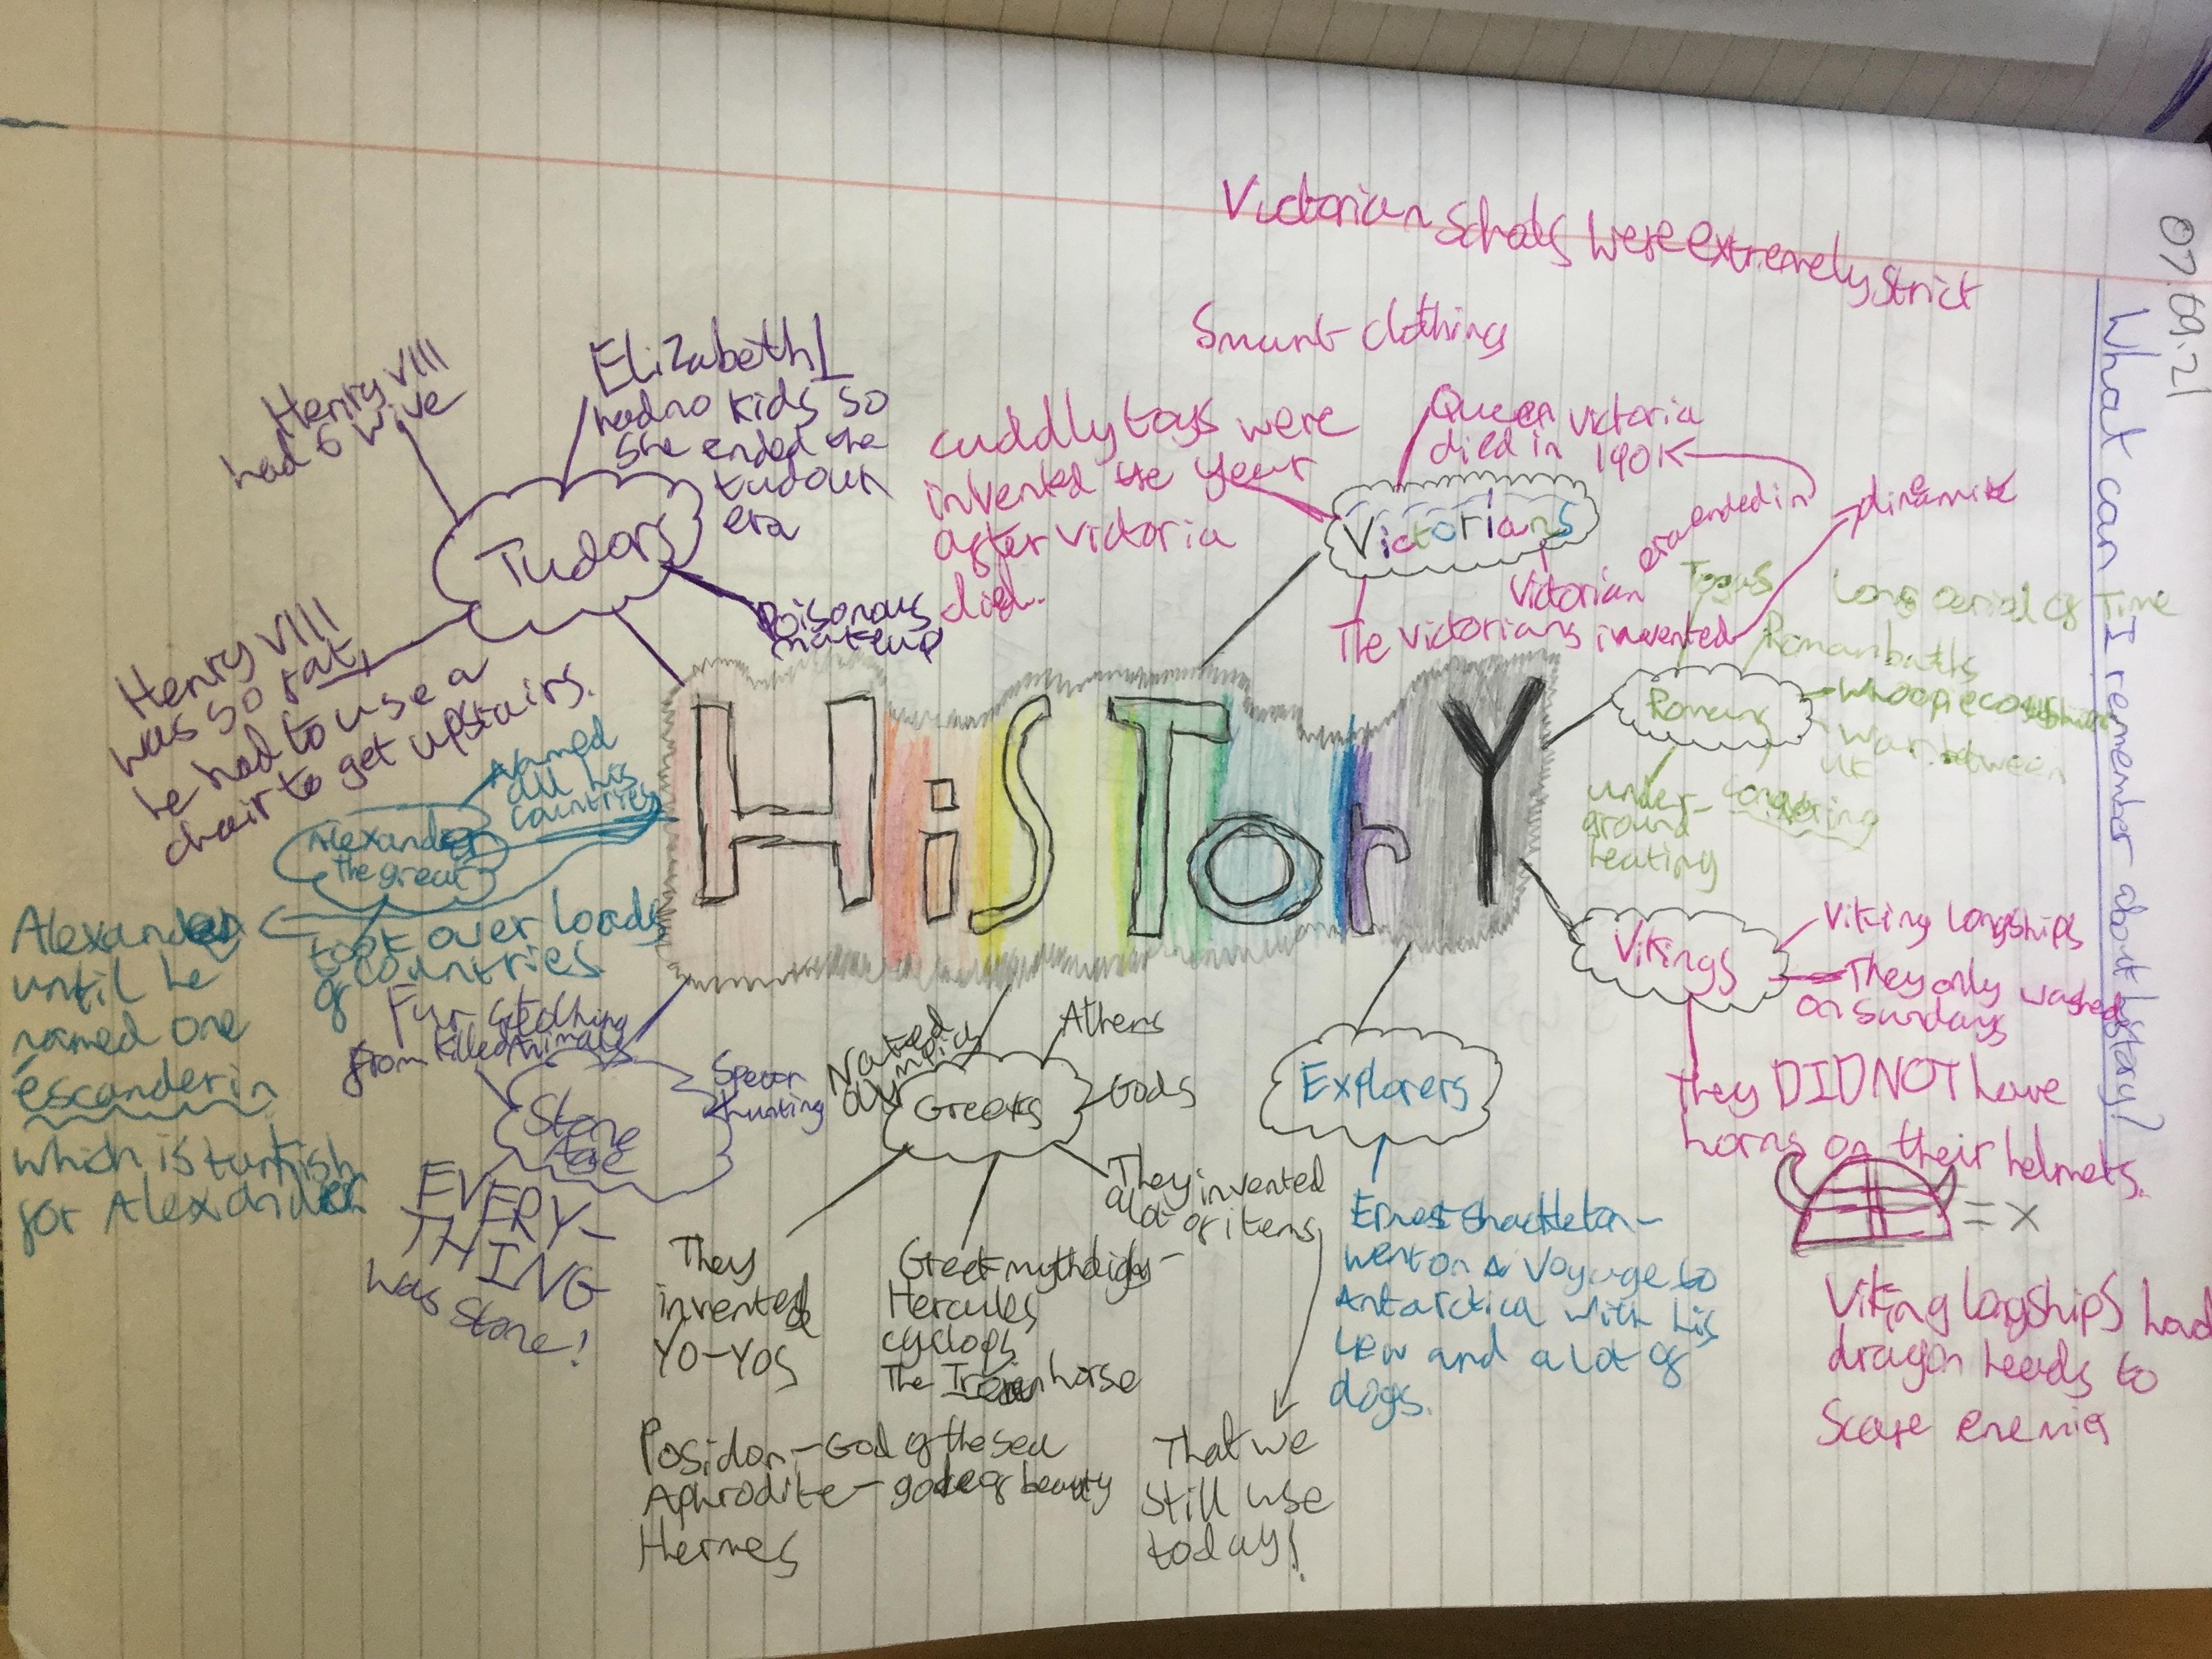 07.09.21
What can I remember about history?
HiSTorY
Victorian Schools were extremely strict
Smart clothing
Henry VIII
had 6 wive
Elizabeth I
had no kids so
she ended the
tudour
era
Tudors
Poisonous
makeup
Henry VIII
was so fat,
he had to use a
chair to get upstairs.
cuddly toys were
invented the year
after victoria
died.
Queen victoria
died in 190
Victorians
Victorian era ended in
The victorians invented
dinemite
Togas
Long period of Time
Roman baths
Romans
whoopie
war between
UK
under-
ground
heating
conquering
Named
all his
countries
Alexander
the great
took over loads
of countries.
Alexander
until he
named one
escanderin
which is turkish
for Alexander
Fur clothing
from killed Animals
Stone
Age
Spear
hunting
EVERY-
THING
was stone!
Naked
olympics
Athens
Greeks
Gods
They invented
a lot of items
That we
still use
today!
They
invented
YO-YOs
Greek mythology-
Hercules
cyclops
The Trojan horse
Posidon-God of the sea
Aphrodite- beauty
Hermes
Explorers
Ernest shackleton-
went on a voyage to
Antarctica with his
crew and a lot of
dogs.
Vikings
Viking longships
They only washed
on sundays
they DID NOT have
horns on their helmets.
= x
Viking longships had
dragon heads to
scare enemies